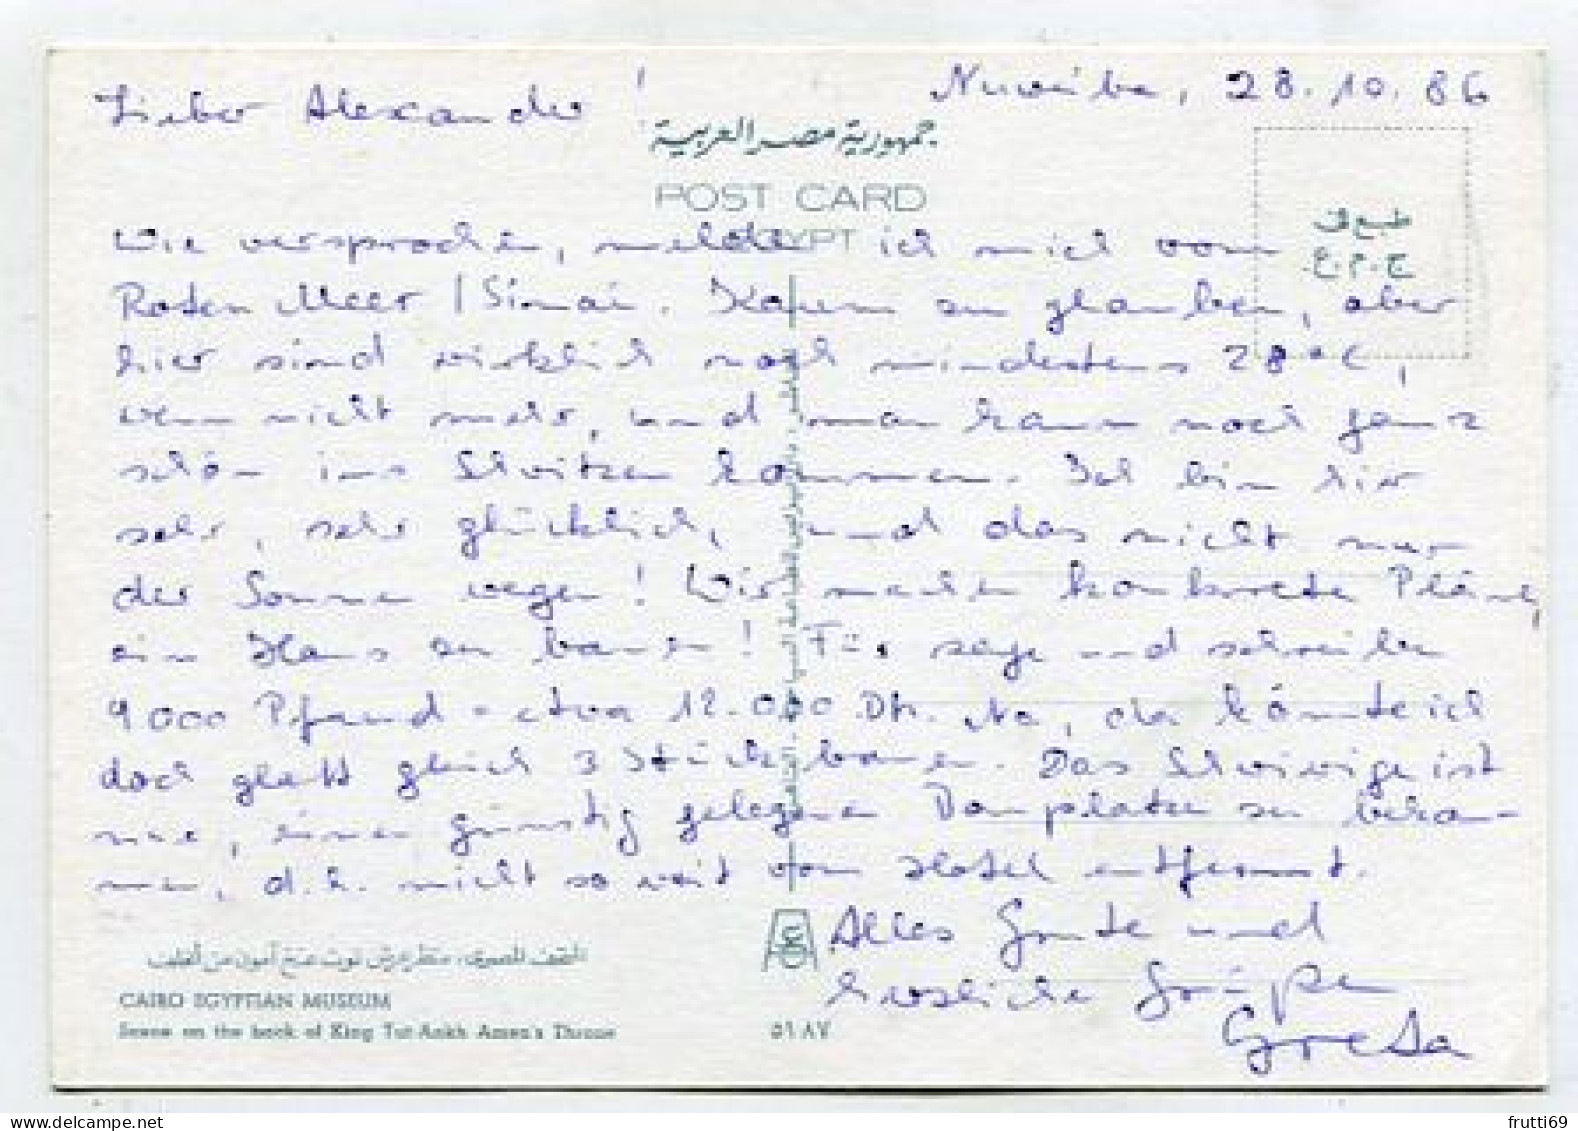 Nuweiba, 28.10.86
Lieber Alexander!
جمهورية مصر العربية
POST CARD
EGYPT
طبع فى
ج.م.ع.
Wie versprochen, melde ich mich vom
Roten Meer / Sinai. Kaum zu glauben, aber
hier sind wirklich noch mindestens 28°C,
wenn nicht mehr, und man kann noch ganz
schön ins Schwitzen kommen. Ich bin hier
sehr, sehr glücklich, und das nicht nur
der Sonne wegen! Wir machen konkrete Pläne,
ein Haus zu bauen! Für sage und schreibe
9000 Pfund - etwa 12.000 DM. Na, da könnte ich
doch glatt gleich 3 Stück bauen. Das Schwierige ist
nur, einen günstig gelegenen Bauplatz zu bekom-
men, d.h. nicht so weit vom Hotel entfernt.
Alles Gute und
herzliche Grüße
Greta
المتحف المصرى، منظر عرش توت عنخ آمون من الخلف
CAIRO EGYPTIAN MUSEUM
Scene on the back of King Tut-Ankh Amen's Throne
٥٦ ٨٧
delcampe.net
frutti69